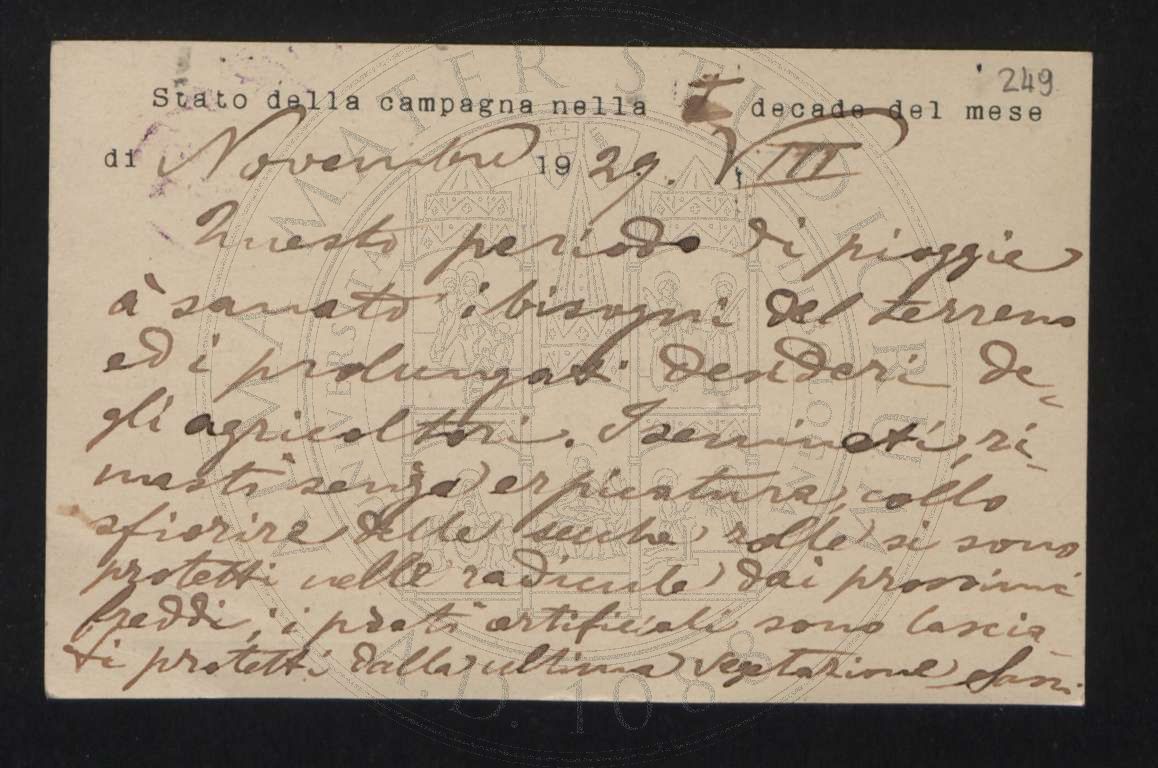 249
Stato della campagna nella I decade del mese
di Novembre 1929. VIII
Questo periodo di pioggie
à sanato i bisogni del terreno
ed i prolungati desideri de-
gli agricoltori. I seminati, ri-
masti senza erpicatura, collo
sfiorire delle secche zolle si sono
protetti nelle radicule dai prossimi
freddi; i prati artificiali sono lascia
ti protetti dalla ultima vegetazione
ALMA MATER STUDIORUM
A.D. 1088